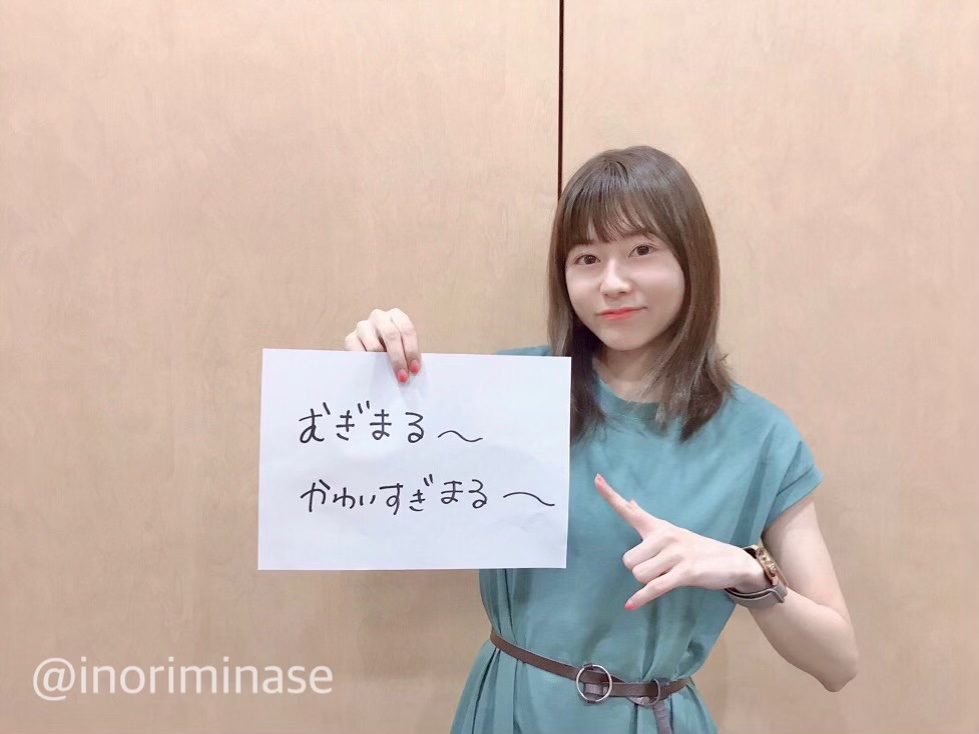 むぎまる〜
かわいすぎまる〜
@inoriminase